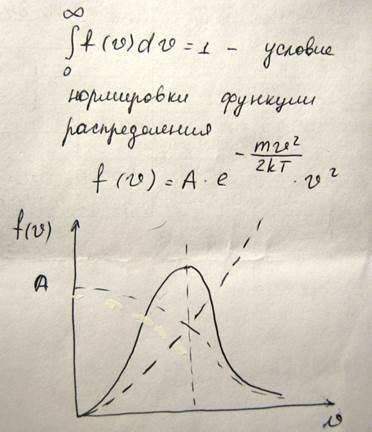 ∞
∫ f(v)dv = 1 - условие
0
нормировки функции
распределения
f(v) = A · e^(-mv²/2kT) · v²
f(v)
A
v